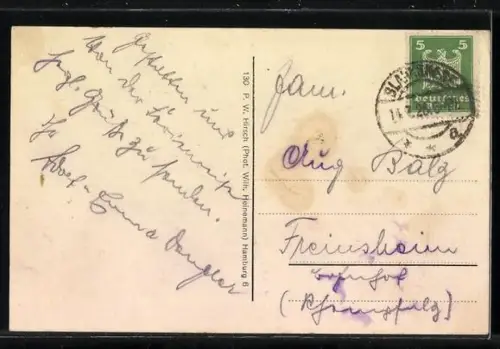 Gestatten uns
Von der Ferienreise
herzl. Grüße zu senden.
Ihr
130 P. W. Hirsch (Phot. Wilh. Heinemann) Hamburg 6
5 5
Deutsches
Fam.
Aug Balg
Freinsheim
Bahnhof
(Rheinpfalz)